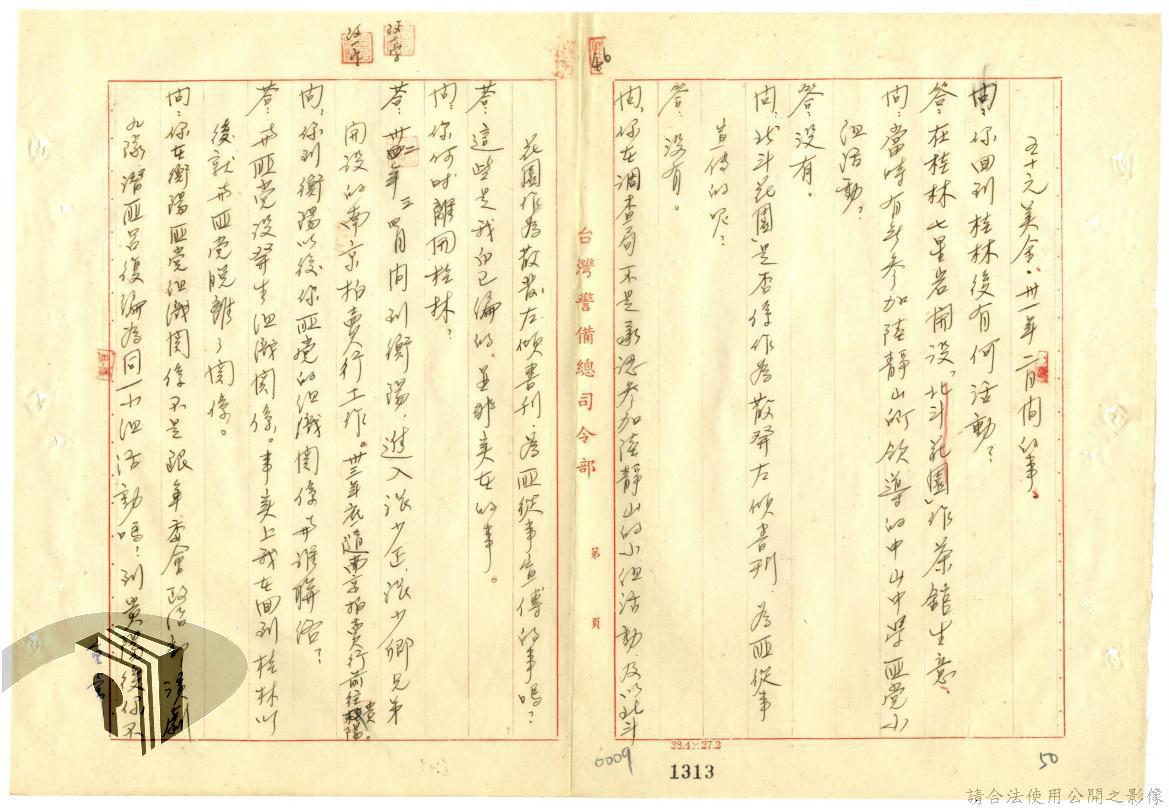 五十元美金，卅一年二月间的事。
問：你回到桂林後有何活動？
答：在桂林七星岩開設「北斗花園」作茶館生意。
問：當時有无参加陸靜山所領導的中山中學匪党小
组活動？
答：没有。
問：北斗花園是否係作為散發左倾書刊，為匪從事
宣傳的呢？
答：没有。
問：你在調查局不是承認参加陸靜山的小组活動及以北斗
花園作為散發左倾書刊，為匪從事宣傳的事嗎？
答：這些是我自己編的，並非实在的事。
問：你何时離開桂林？
答：卅二年三四月间到衡陽，進入張少正、張少卿兄弟
開設的南京拍賣行工作。卅三年底隨南京拍賣行前往貴陽。
問：你到衡陽以後你匪党的组織関係与谁聯絡？
答：与匪党没發生组織関係。事实上我在回到桂林以
後就与匪党脱離了関係。
問：你在衡陽匪党组織関係不是跟军委會政治部演劇
九隊潛匪呂復編為同一小组活動嗎？到貴陽後你不
台灣警備總司令部
第 頁
46
50
0009
38.4×27.2
1313
請合法使用公開之影像